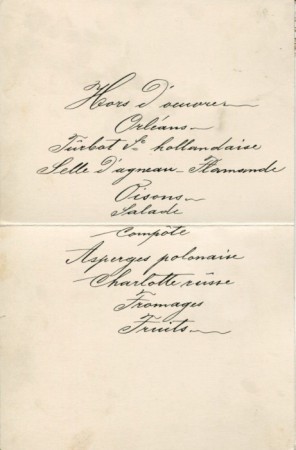 Hors d'oeuvres
Orléans
Turbot Sce hollandaise
Selle D'agneau Flamande
Oisons
Salade
Compôte
Asperges polonaise
Charlotte russe
Fromages
Fruits